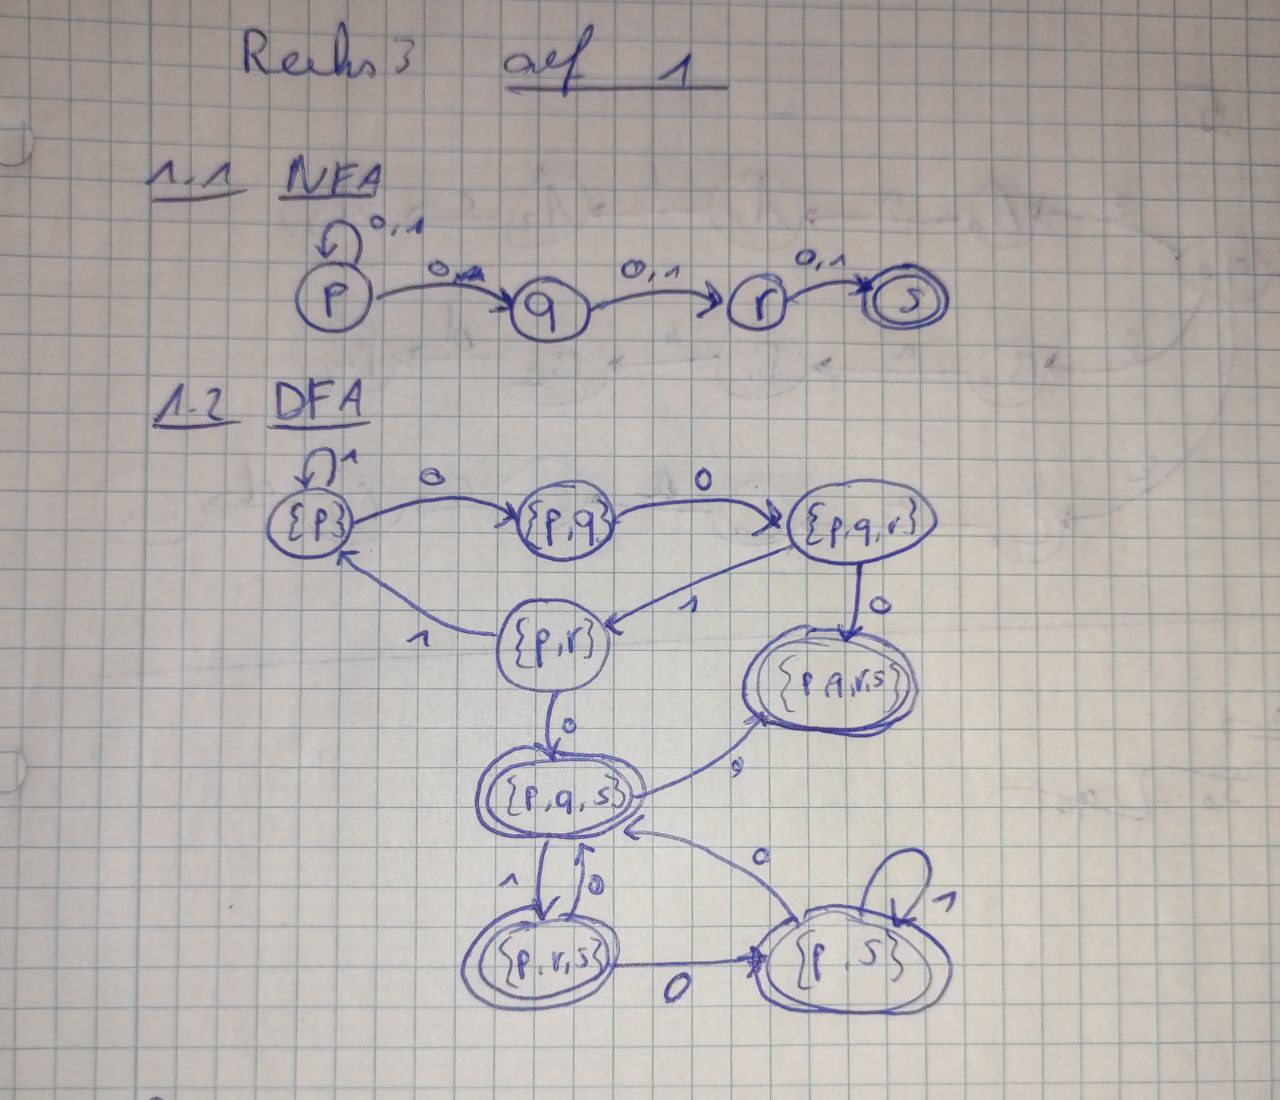 Reihs 3 auf 1
1.1 NFA
0,1
0, 0,1 0,1
p q r s
1.2 DFA
1 0 0
{p} {p,q} {p,q,r}
1 1 0
{p,r} {p,q,r,s}
0
0
{p,q,s}
1 0 0 1
{p,r,s} 0 {p,s}